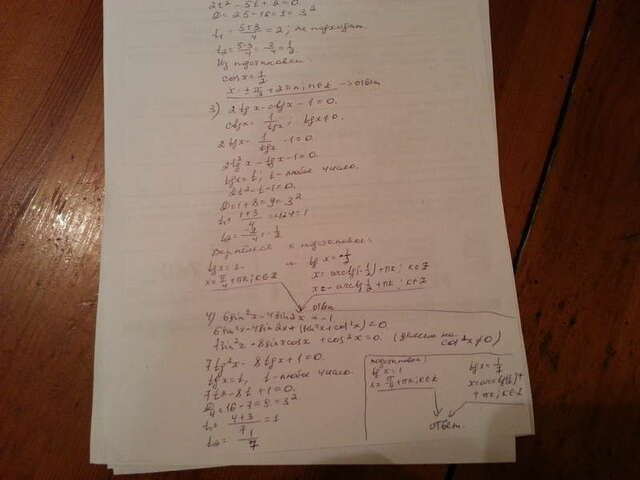 2t² - 5t + 2 = 0.
D = 25 - 16 = 9 = 3²
t₁ = (5+3)/4 = 2; не подходит.
t₂ = (5-3)/4 = 2/4 = 1/2.
Из подстановки:
cos x = 1/2
x = ± π/3 + 2πn; n∈Z → ответ
3) 2tgx - ctgx - 1 = 0.
ctgx = 1/tgx; tgx ≠ 0.
2tgx - 1/tgx - 1 = 0.
2tg²x - tgx - 1 = 0.
tgx = t; t - любое число.
2t² - t - 1 = 0.
D = 1 + 8 = 9 = 3²
t₁ = (1+3)/4 = 4/4 = 1
t₂ = -2/4 = -1/2
Вернёмся к подстановке:
tgx = 1. и tgx = -1/2
x = π/4 + πk; k∈Z x = arctg(-1/2) + πk; k∈Z
x = -arctg 1/2 + πk; k∈Z
ответ
4) 6sin²x - 4sin2x = -1
6sin²x - 4sin2x + (sin²x + cos²x) = 0.
7sin²x - 8sinx cosx + cos²x = 0 (делим на cos²x ≠ 0)
7tg²x - 8tgx + 1 = 0.
tgx = t, t - любое число.
7t² - 8t + 1 = 0.
D/4 = 16 - 7 = 9 = 3²
t₁ = (4+3)/7 = 1
t₂ = 1/7
подстановка:
tgx = 1
x = π/4 + πk; k∈Z
tgx = 1/7
x = arctg(1/7) +
+ πk; k∈Z
ответ.